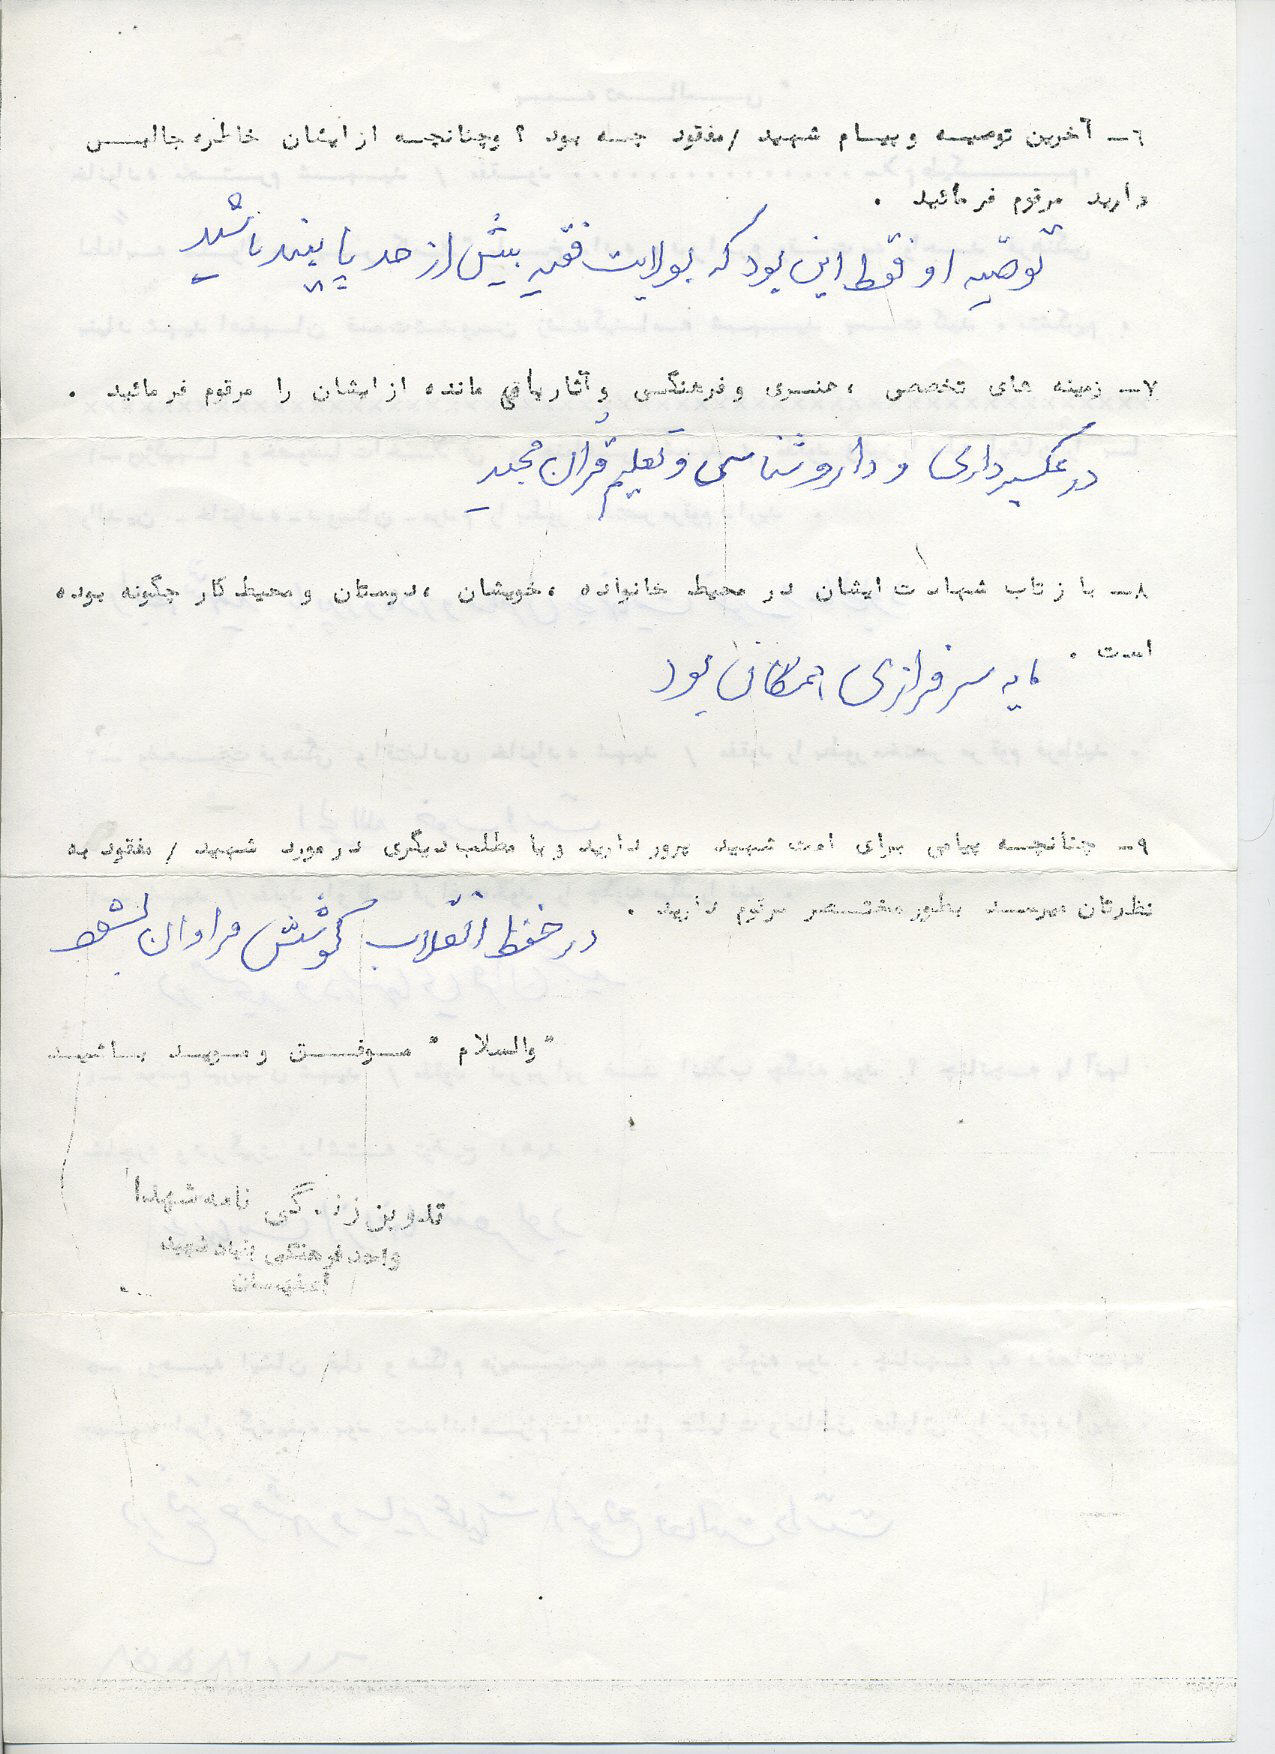 ۶ـ آخرین توصیه و پیام شهید / مفقود چه بود ؟ وچنانچه از ایشان خاطره جالبی
دارید مرقوم فرمائید .
توصیه او فقط این بود که بولایت فقیه بیش از حد پایبند باشید
۷ـ زمینه های تخصصی ، هنری و فرهنگی و آثار باقی مانده از ایشان را مرقوم فرمائید .
در عکسبرداری و داروشناسی و تعلیم قرآن مجید
۸ـ بازتاب شهادت ایشان در محیط خانواده ، خویشان ، دوستان و محیط کار چگونه بوده
است .
مایه سرفرازی همگان بود
۹ـ چنانچه پیامی برای امت شهید پرور دارید و یا مطلب دیگری در مورد شهید / مفقود به
نظرتان میرسد بطور مختصر مرقوم دارید .
در حفظ انقلاب کوشش فراوان بشود
" والسلام " موفق و موید باشید
تدوین زندگی نامه شهدا
واحد فرهنگی بنیاد شهید
اصفهان